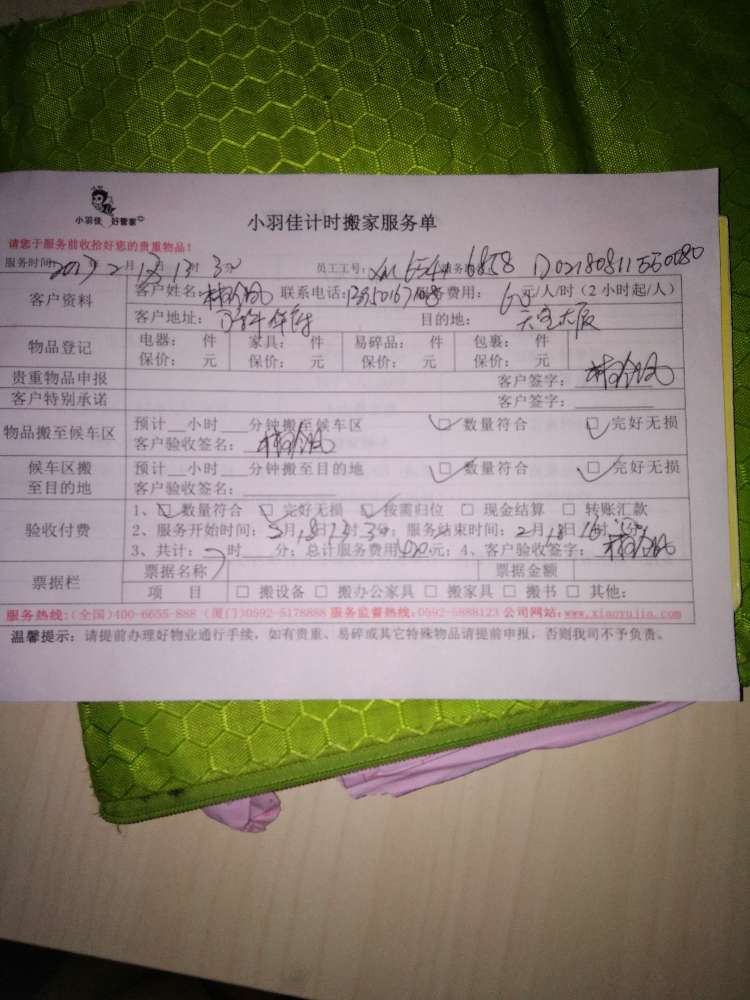 小羽佳 好管家
小羽佳计时搬家服务单
请您于服务前收拾好您的贵重物品！
服务时间： 年2月 日13时3 分 员工工号： 6858 D02180811550080
客户资料 客户姓名： 联系电话： 费用： 元/人/时（2 小时起/人）
客户地址： 目的地：
物品登记 电器： 件 家具： 件 易碎品： 件 包裹： 件
保价： 元 保价： 元 保价： 元 保价： 元
贵重物品申报 客户签字：
客户特别承诺 客户签字：
物品搬至候车区 预计__小时__分钟搬至候车区 □数量符合 □完好无损
客户验收签名：
候车区搬至目的地 预计__小时__分钟搬至目的地 □数量符合 □完好无损
客户验收签名：
验收付费 1、□数量符合 □完好无损 □按需归位 □现金结算 □转账汇款
2、服务开始时间： 月18日13时3 分；服务结束时间：2月18日16时 分；
3、共计： 时 分；总计服务费用 元；4、客户验收签字：
票据栏 票据名称 票据金额
项 目 □搬设备 □搬办公家具 □搬家具 □搬书 □其他：
服务热线：(全国)400-6655-888 (厦门)0592-5178888 服务监督热线：0592-5888123 公司网站：www.xiaoyujia.com
温馨提示：请提前办理好物业通行手续，如有贵重、易碎或其它特殊物品请提前申报，否则我司不予负责。